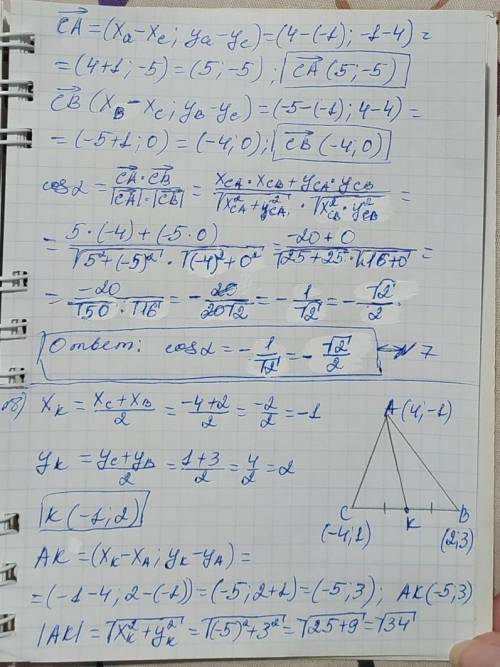 CA⃗ = (xₐ − x_c; yₐ − y_c) = (4 − (−1); −1−4) =
= (4+1; −5) = (5; −5); CA⃗ (5; −5)
CB⃗ (x_B − x_c; y_B − y_c) = (−5 − (−1); 4−4) =
= (−5+1; 0) = (−4; 0); CB⃗ (−4; 0)
cos α = (CA⃗ · CB⃗)/(|CA⃗| · |CB⃗|) = (x_CA · x_CB + y_CA · y_CB)/(√(x²_CA + y²_CA) · √(x²_CB · y²_CB)) =
= (5·(−4) + (−5·0))/(√(5² + (−5)²) · √((−4)² + 0²)) = (−20+0)/(√(25+25) · √(16+0)) =
= −20/(√50 · √16) = −20/(20√2) = −1/√2 = −√2/2.
Ответ: cos α = −1/√2 = −√2/2
N 7
8) x_K = (x_C + x_B)/2 = (−4+2)/2 = −2/2 = −1
y_K = (y_C + y_B)/2 = (1+3)/2 = 4/2 = 2
K (−1; 2)
A(4; −1)
C
K
B
(−4; 1)
(2; 3)
AK = (x_K − x_A; y_K − y_A) =
= (−1−4; 2−(−1)) = (−5; 2+1) = (−5; 3); AK(−5; 3)
|AK| = √(x²_K + y²_K) = √((−5)² + 3²) = √(25+9) = √34